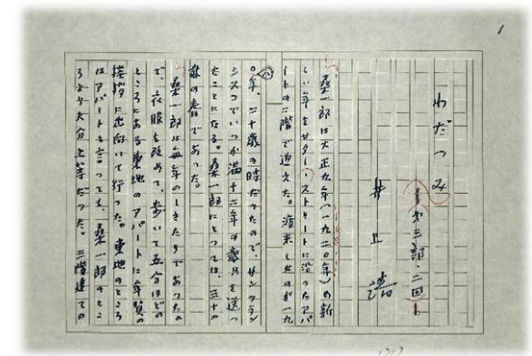 1
わだつみ
第三部・二回
井上靖
桑一郎は大正九年(一九二〇年)の新
しい年をサター・ストリートに沿ったアパ
ートの二階で迎えた。渡米したのが一九
年、二十歳の時だったので、サンフラン
シスコでいつか満十二年の歳月を送っ
たことになる。桑一郎にとっては、三十
歳の春であった。
桑一郎は毎年のしきたりであったの
で、衣服を改めて、歩いて五分ほどの
ところにある東地のアパートに年賀の
挨拶に出向いて行った。東地のところ
はアパートと言っても、桑一郎のとこ
ろより大分上等だった。二階建ての